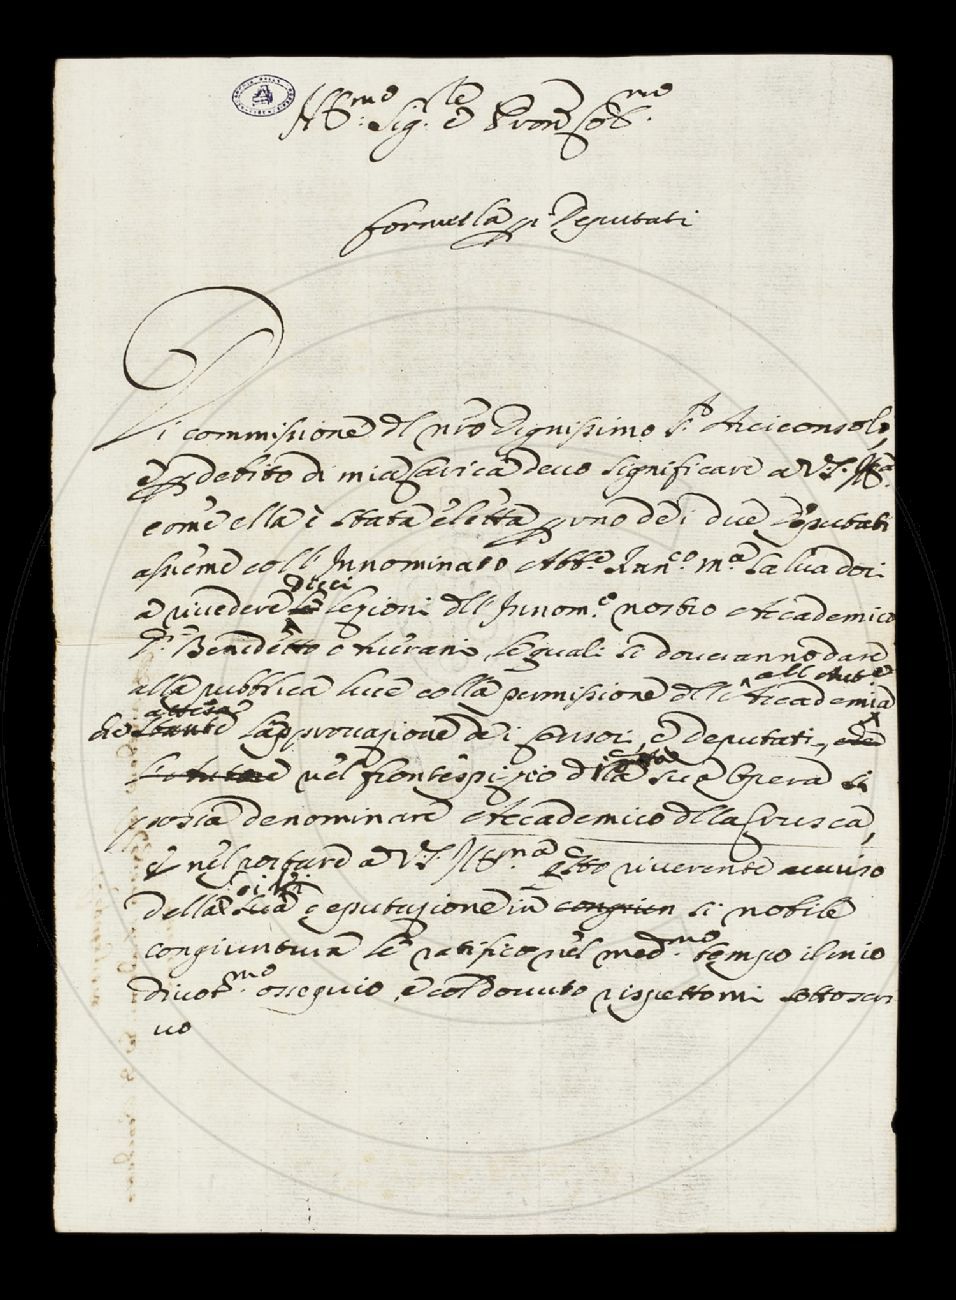 Ill.mo Sig.re e Pron Col.mo
formula p. Deputati
Di commissione del nro Dignissimo S.r Arciconsolo,
e p debito di mia carica devo significare a V.S. Ill.ma
come ella è stata eletta p uno dei due deputati
assieme coll' Innominato Abb.e Ran.co M.a Salvadori
a rivedere le dieci lezioni dell' Innom.o nostro Accademico
S.r Benedetto Averani, le quali si doveranno dare
alla pubblica luce colla permissione dell' Accademia all' Autore
che stante attesa l'approvazione dei Censori, e deputati,
l'Autore nel frontespizio della sua Opera si
possa denominare Accademico della Crusca,
e nel portare a V.S. Ill.ma questo riverente avviso
della sua di lei deputazione in congiun si nobile
congiuntura le ratifico nel med.mo tempo il mio
divot.mo ossequio, e col dovuto rispetto mi sottoscri
vo